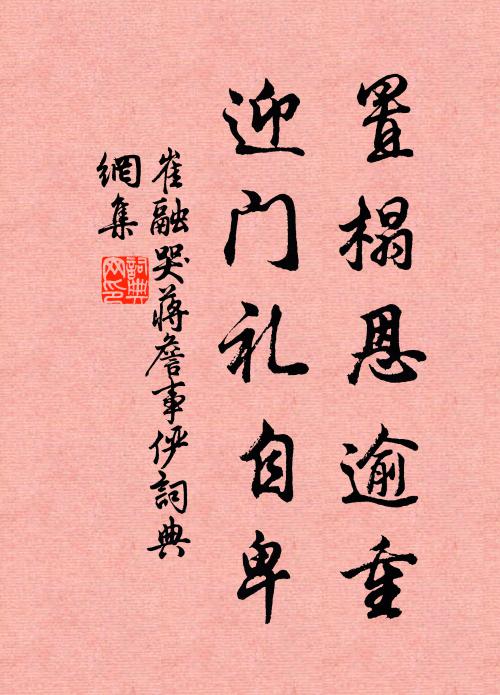 置榻恩逾重
迎门礼自卑
崔融哭蒋詹事俨詞典
網集
詞典
网印